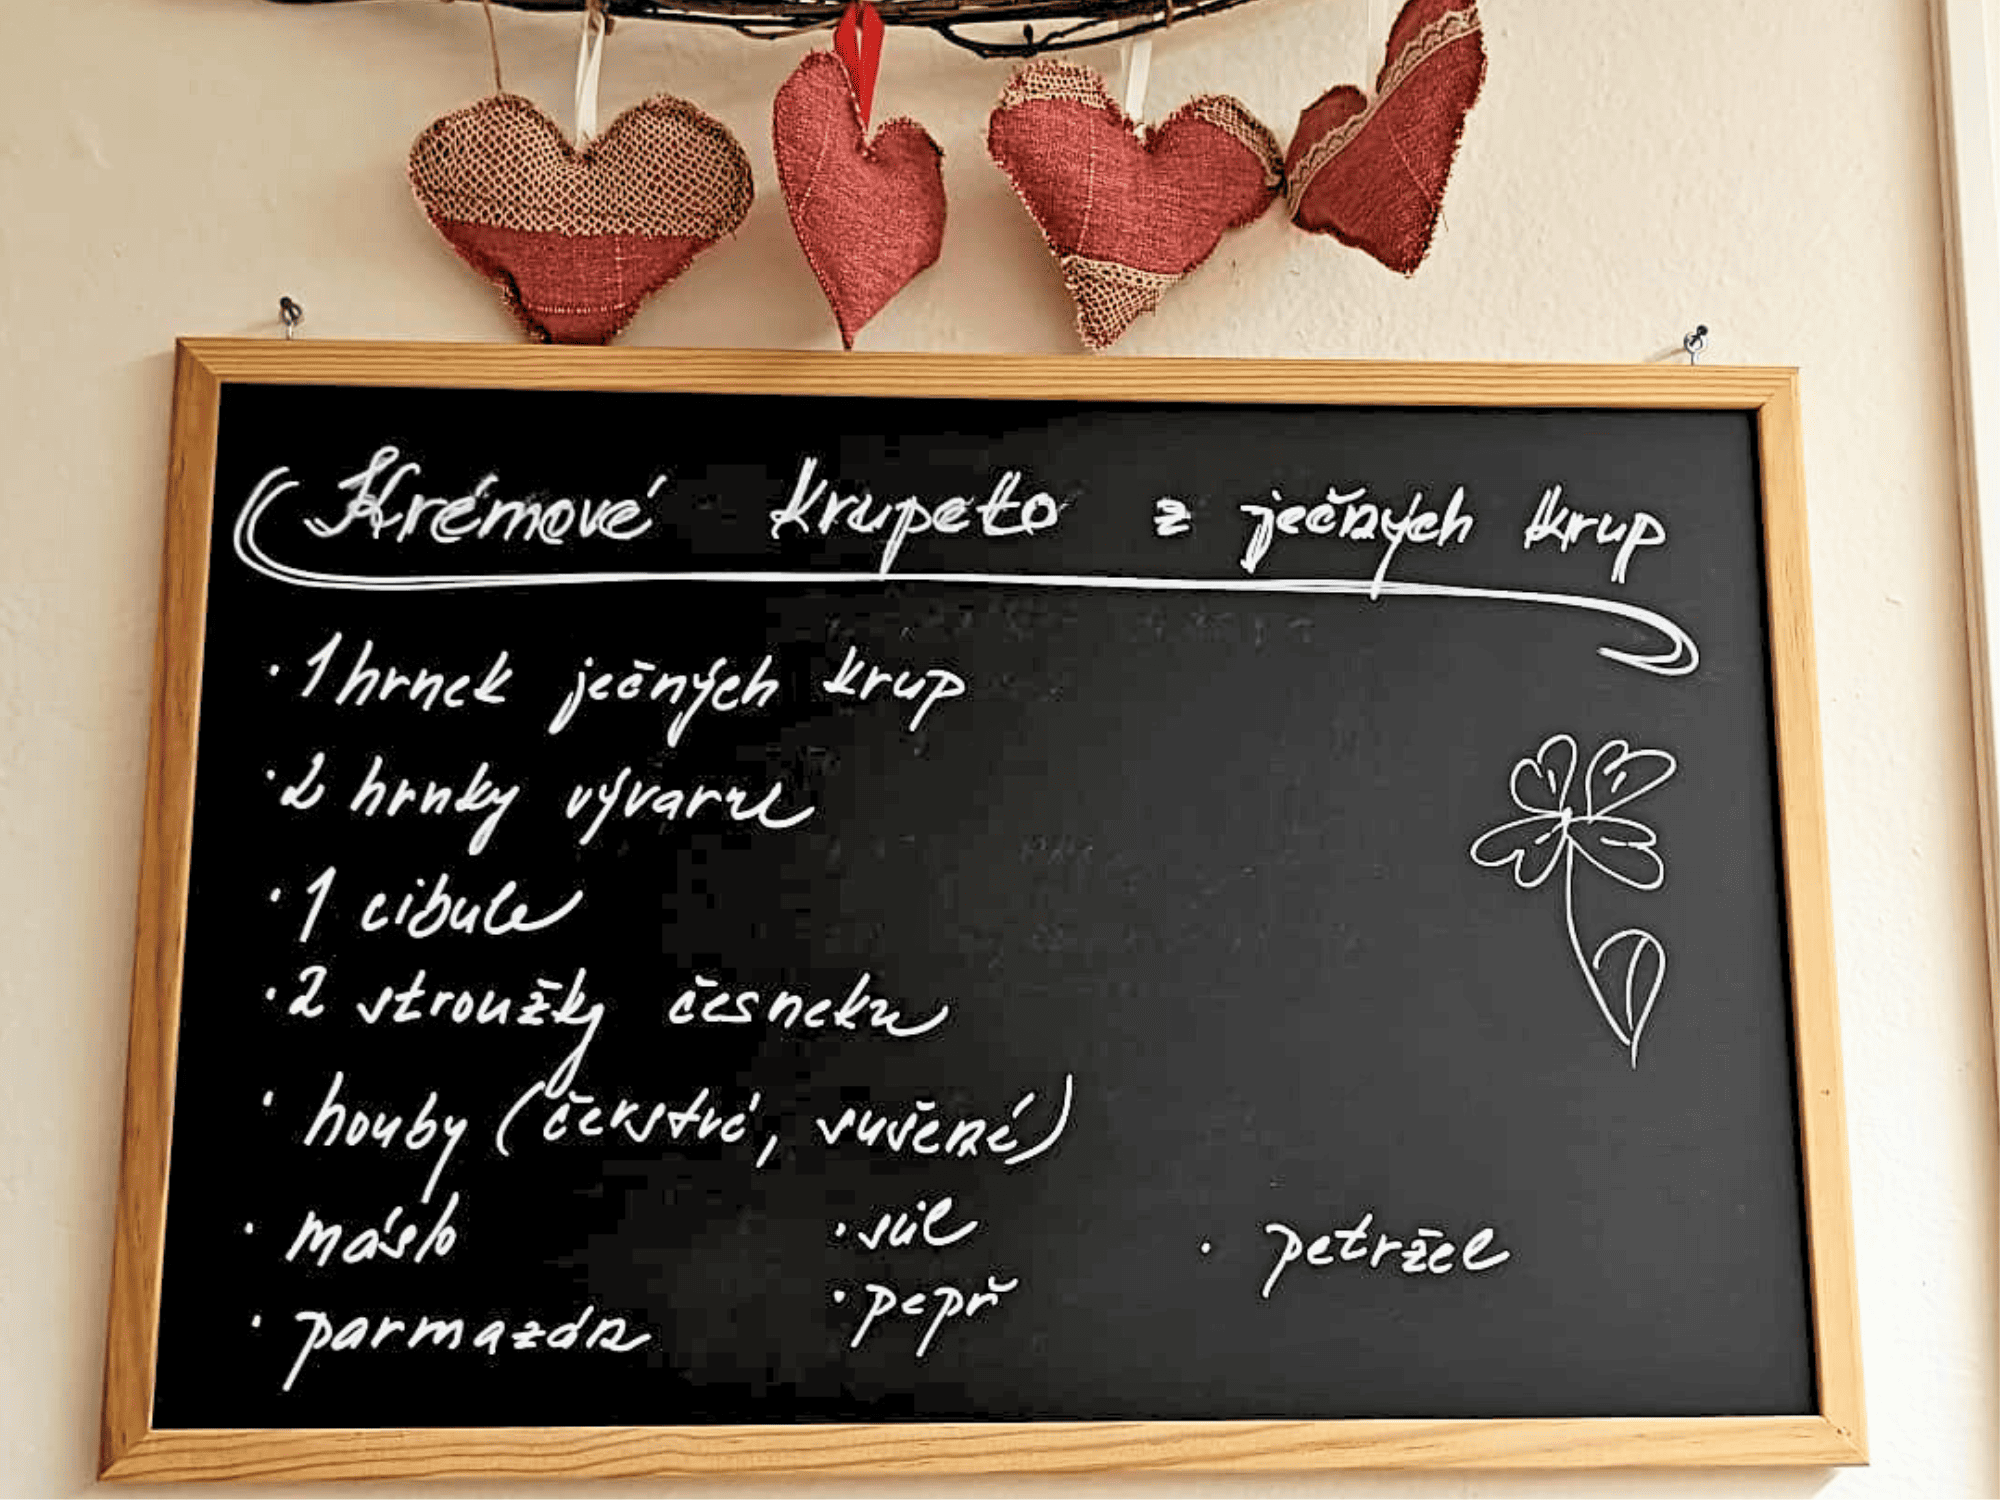 Krémové krupeto z ječných krup
· 1 hrnek ječných krup
· 2 hrnky vývaru
· 1 cibule
· 2 stroužky česneku
· houby (čerstvé, sušené)
· máslo · sůl · petržel
· parmazán · pepř